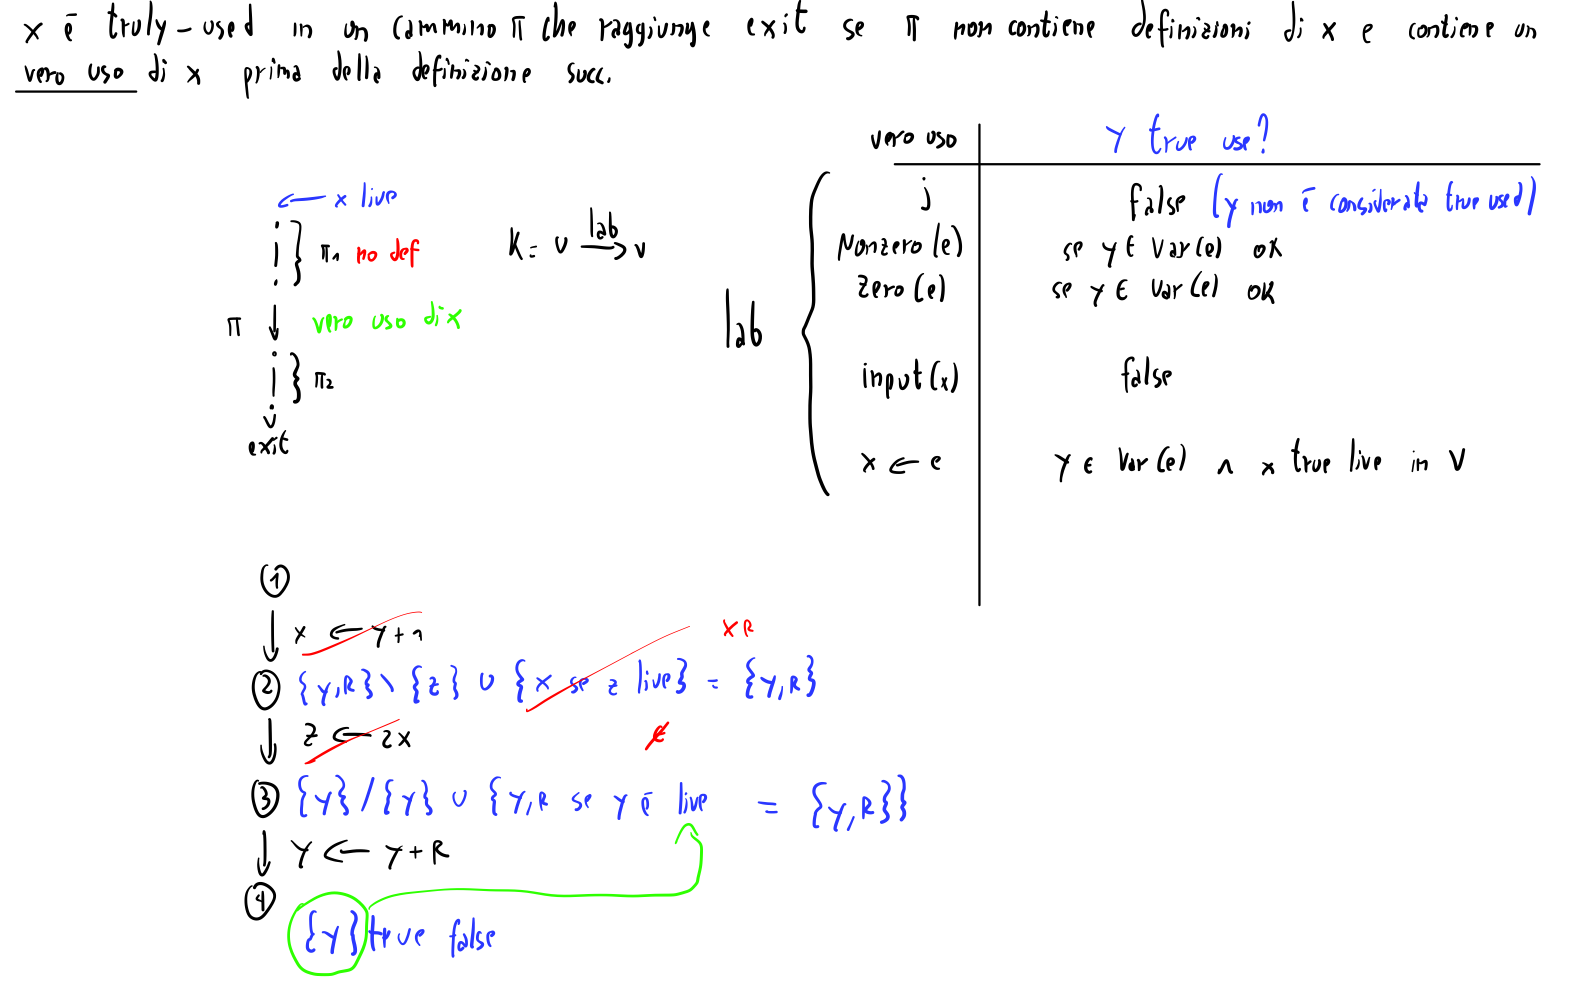 x è truly-used in un cammino π che raggiunge exit se π non contiene definizioni di x e contiene un
vero uso di x prima della definizione succ.
vero uso
Y true use?
← x live
π₁ no def
K = u lab→ v
π
vero uso di x
π₂
exit
lab
;
false (y non è considerata true used)
Nonzero(e)
se y ∈ Var(e) ok
Zero(e)
se y ∈ Var(e) ok
input(x)
false
x ← e
y ∈ Var(e) ∧ x true live in V
1
x ← y+1
x R
2 {y,R} \ {z} ∪ {x se z live} = {y,R}
z ← 2x
∉
3 {y}/{y} ∪ {y,R se y è live = {y,R}}
y ← y+R
4
{y} true false